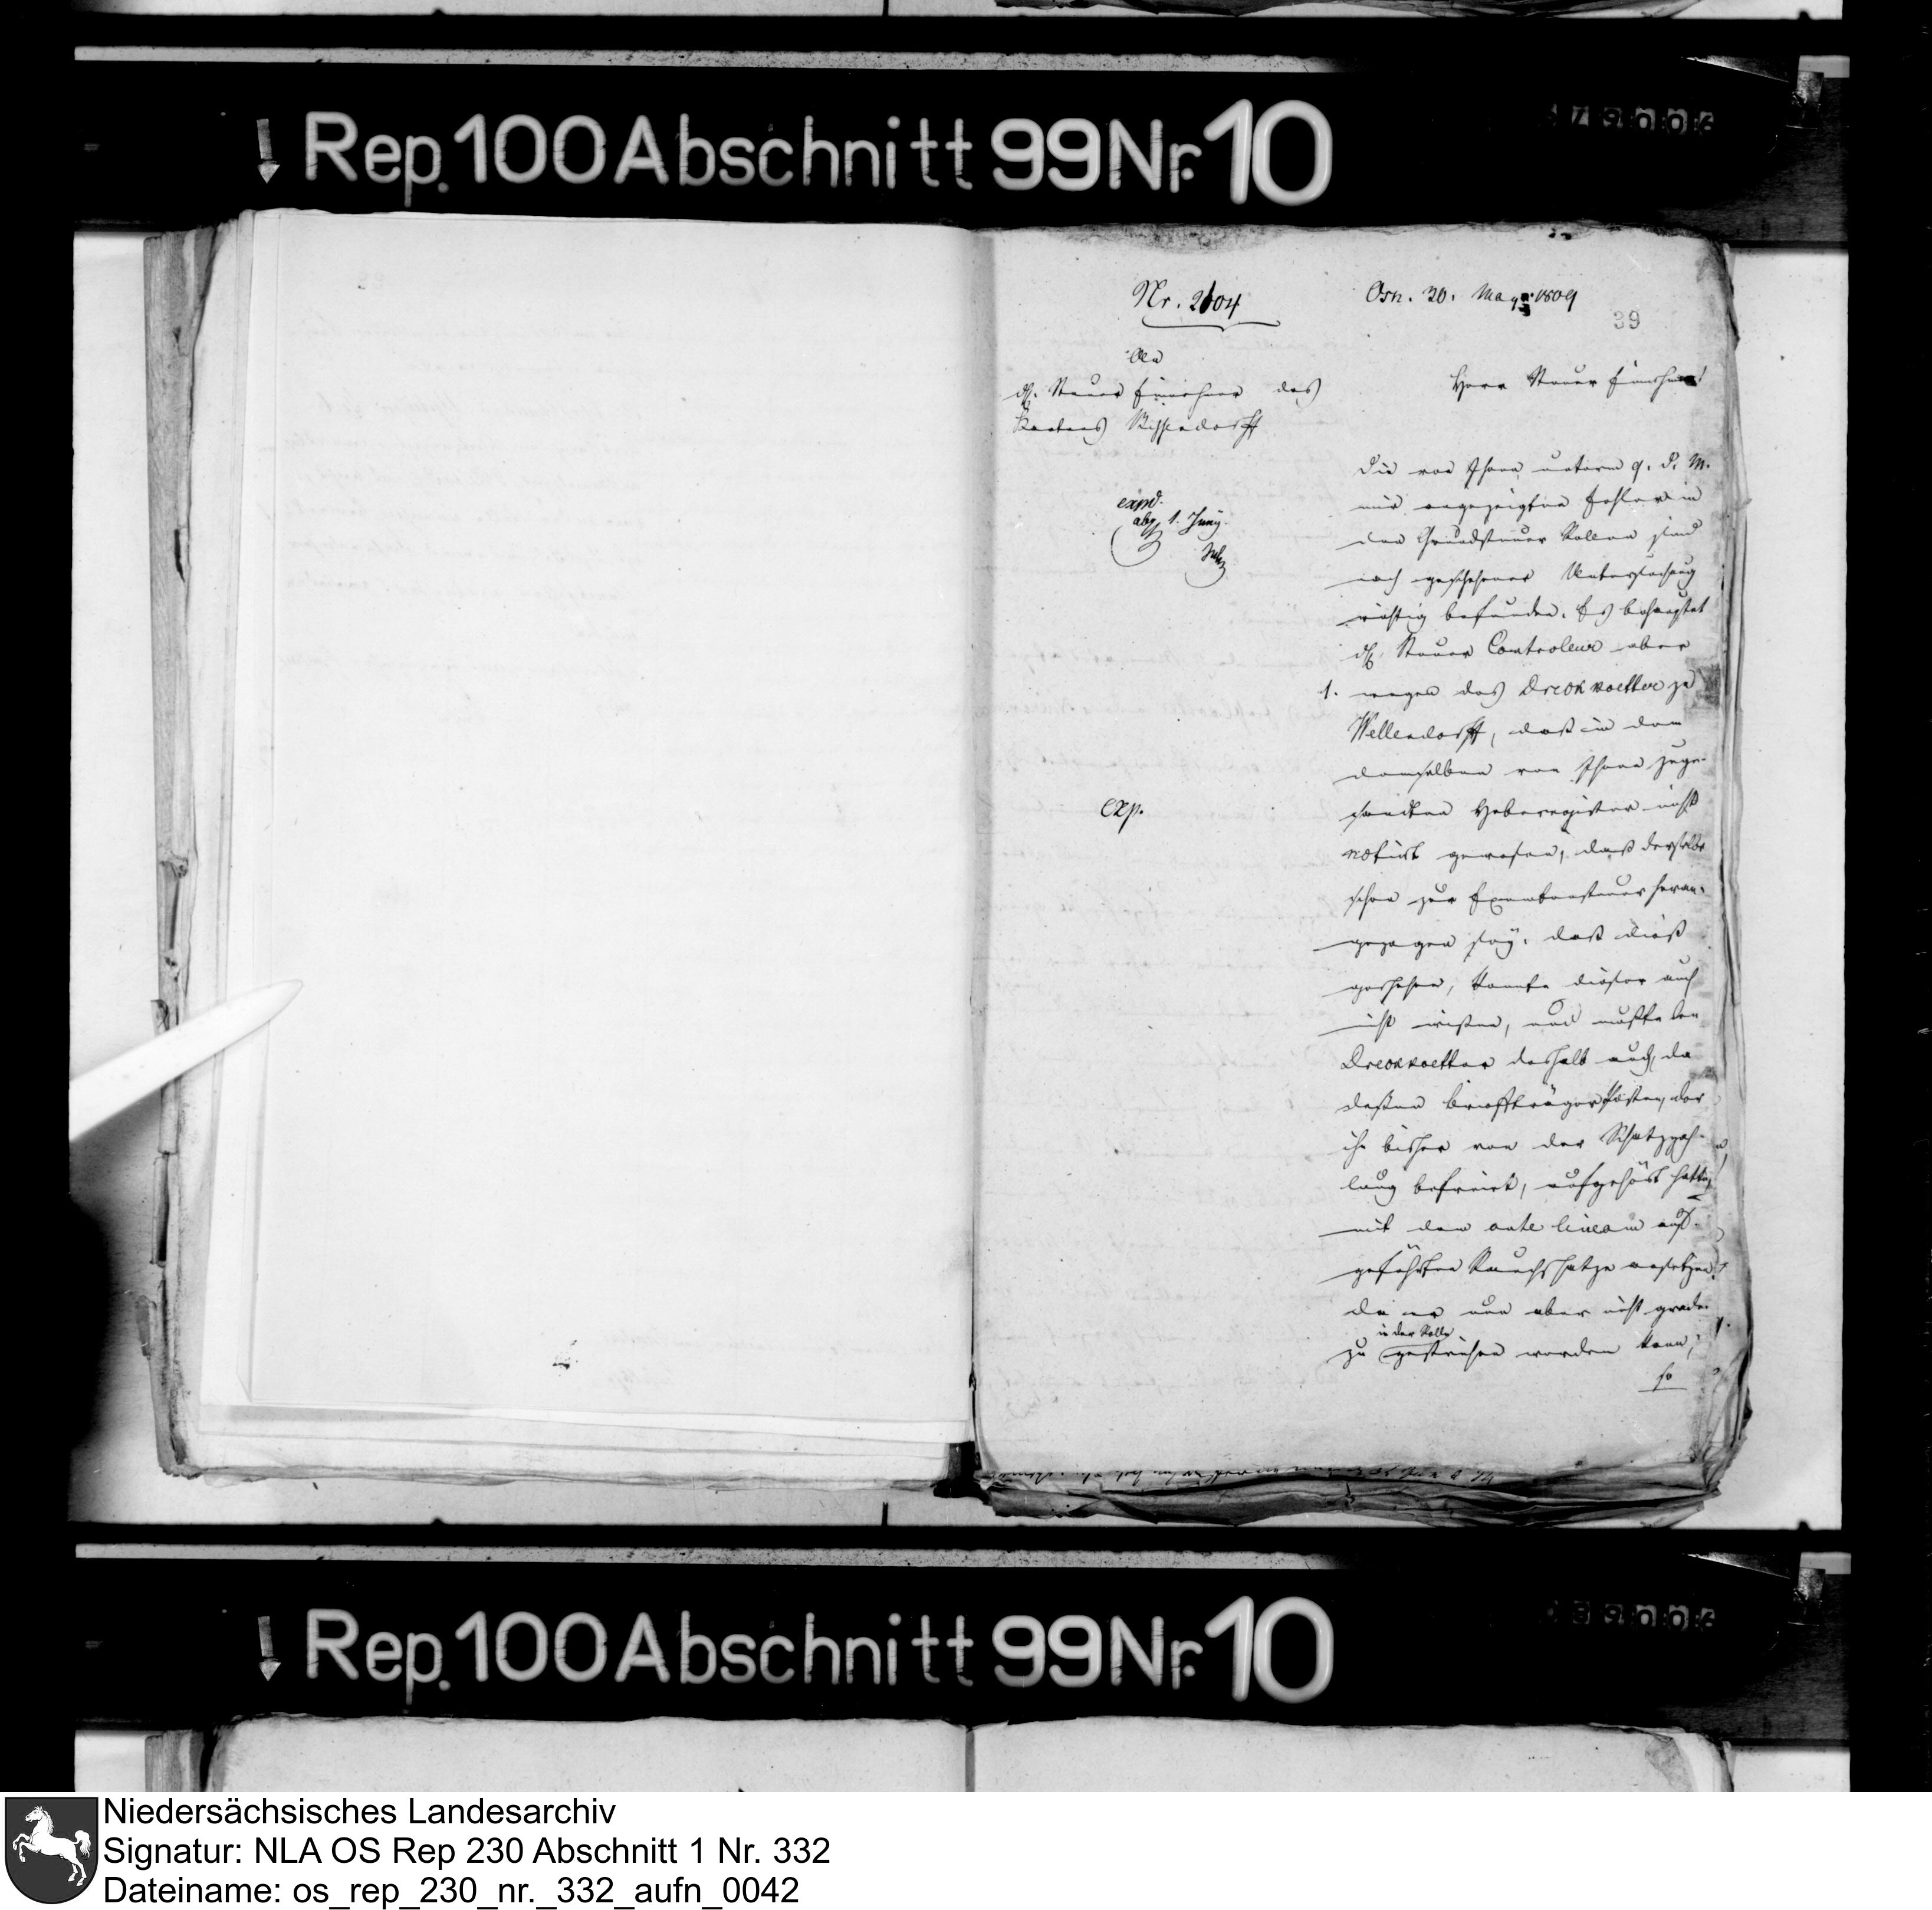 ↓ Rep. 100 Abschnitt 99 Nr. 10
Nr. 2104
Osn. 30. May 1809
39
An
d. H. Steuer Einnehmer des
Cantons Bissendorff
Herr Steuer Einnehmer!
expd.
abg. 1. Juny.
exp.
Die von Ihnen unterm 9. d. M.
mir angezeigten Fehler in
den Grundsteuer Rollen sind
nach geschehener Untersuchung
richtig befunden. Es behauptet
d. H. Steuer Controleur aber
1. wegen des Dreokoetter zu
Wellendorff, daß in dem
demselben von Ihnen zuge-
sandten Heberegister nicht
notirt gewesen, daß derselbe
schon zur Exemtensteuer heran-
gezogen sey; daß dieß
geschehen, konnte dieser auch
nicht wißen, und mußte den
Dreokoetter deshalb auch, da
deßen Briefträger Posten, der
ihn bisher von der Schatzzah-
lung befreiet, aufgehört hatte,
mit dem ante lineam auf-
geführten Rauchschatze ansetzen.
da er nun aber nicht grade-
in der Rolle
zu gestrichen werden kann,
so
↓ Rep. 100 Abschnitt 99 Nr. 10
Niedersächsisches Landesarchiv
Signatur: NLA OS Rep 230 Abschnitt 1 Nr. 332
Dateiname: os_rep_230_nr._332_aufn_0042